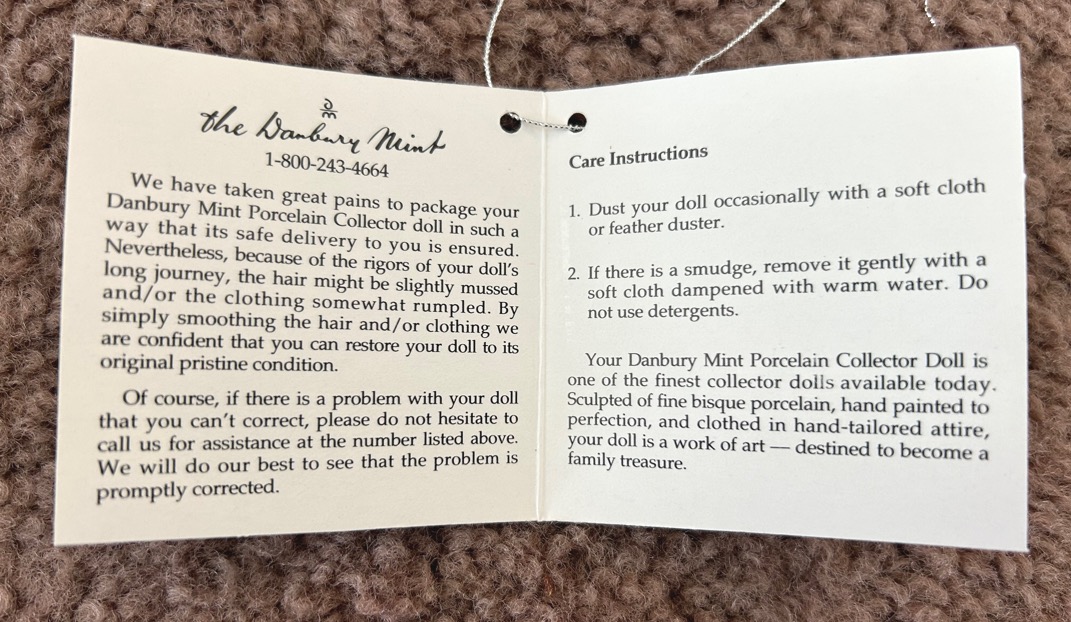 the Danbury Mint
1-800-243-4664
We have taken great pains to package your
Danbury Mint Porcelain Collector doll in such a
way that its safe delivery to you is ensured.
Nevertheless, because of the rigors of your doll's
long journey, the hair might be slightly mussed
and/or the clothing somewhat rumpled. By
simply smoothing the hair and/or clothing we
are confident that you can restore your doll to its
original pristine condition.
Of course, if there is a problem with your doll
that you can't correct, please do not hesitate to
call us for assistance at the number listed above.
We will do our best to see that the problem is
promptly corrected.
Care Instructions
1. Dust your doll occasionally with a soft cloth
or feather duster.
2. If there is a smudge, remove it gently with a
soft cloth dampened with warm water. Do
not use detergents.
Your Danbury Mint Porcelain Collector Doll is
one of the finest collector dolls available today.
Sculpted of fine bisque porcelain, hand painted to
perfection, and clothed in hand-tailored attire,
your doll is a work of art — destined to become a
family treasure.